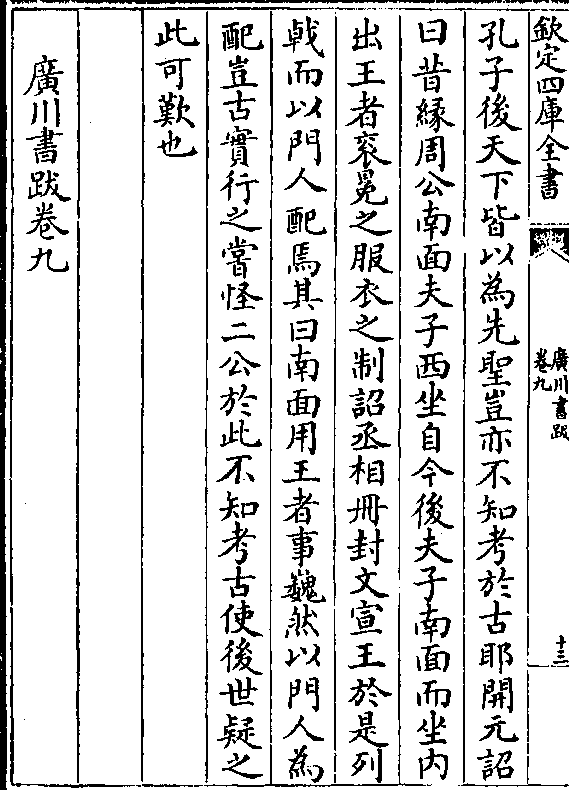 欽定四庫全書
廣川書跋
卷九
十三
孔子後天下皆以為先聖豈亦不知考於古耶開元詔
曰昔緣周公南面夫子西坐自今後夫子南面而坐内
出王者衮冕之服衣之制詔丞相冊封文宣王於是列
㦸而以門人配焉其曰南面用王者事巍然以門人為
配豈古實行之嘗怪二公於此不知考古使後世疑之
此可歎也
廣川書跋卷九